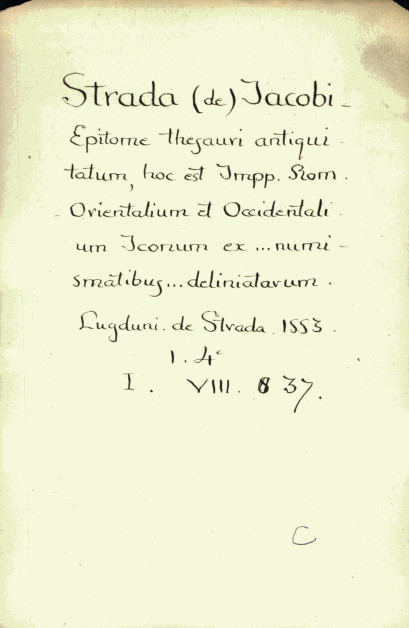 Strada (de) Jacobi -
Epitome thesauri antiqui -
tatum, hoc est Impp. Rom.
Orientalium et Occidentali -
um Iconum ex ... numi -
smatibus ... deliniatarum.
Lugduni. de Strada. 1553.
1. 4°
I. VIII. 8 37.
C